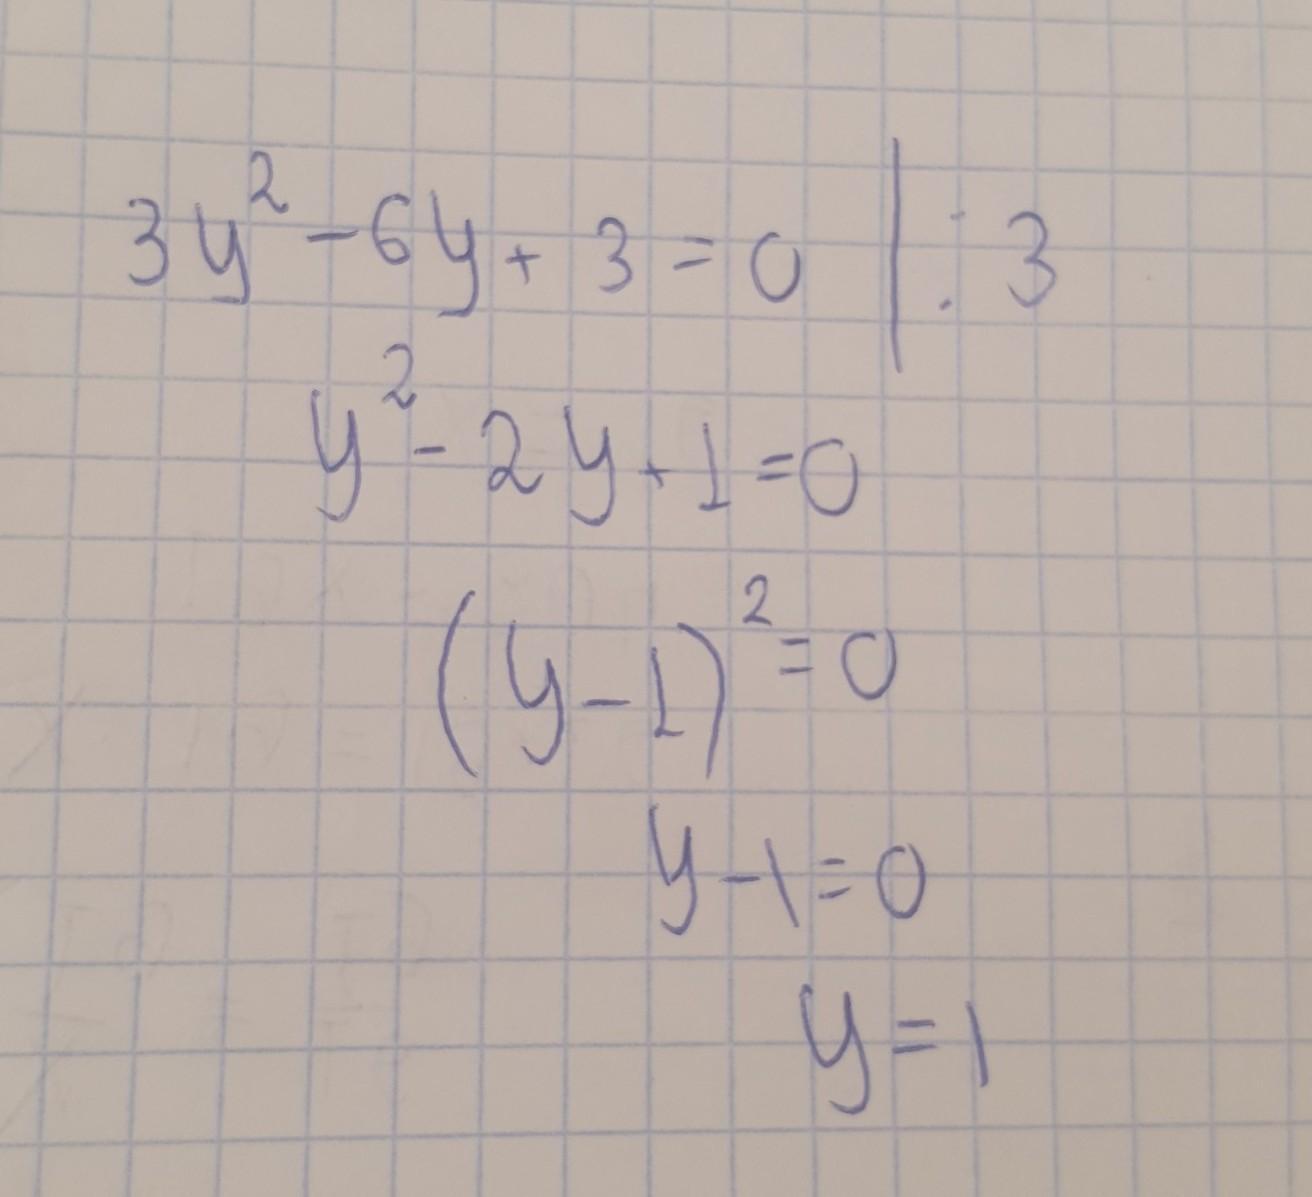 3y² - 6y + 3 = 0 | : 3
y² - 2y + 1 = 0
(y - 1)² = 0
y - 1 = 0
y = 1